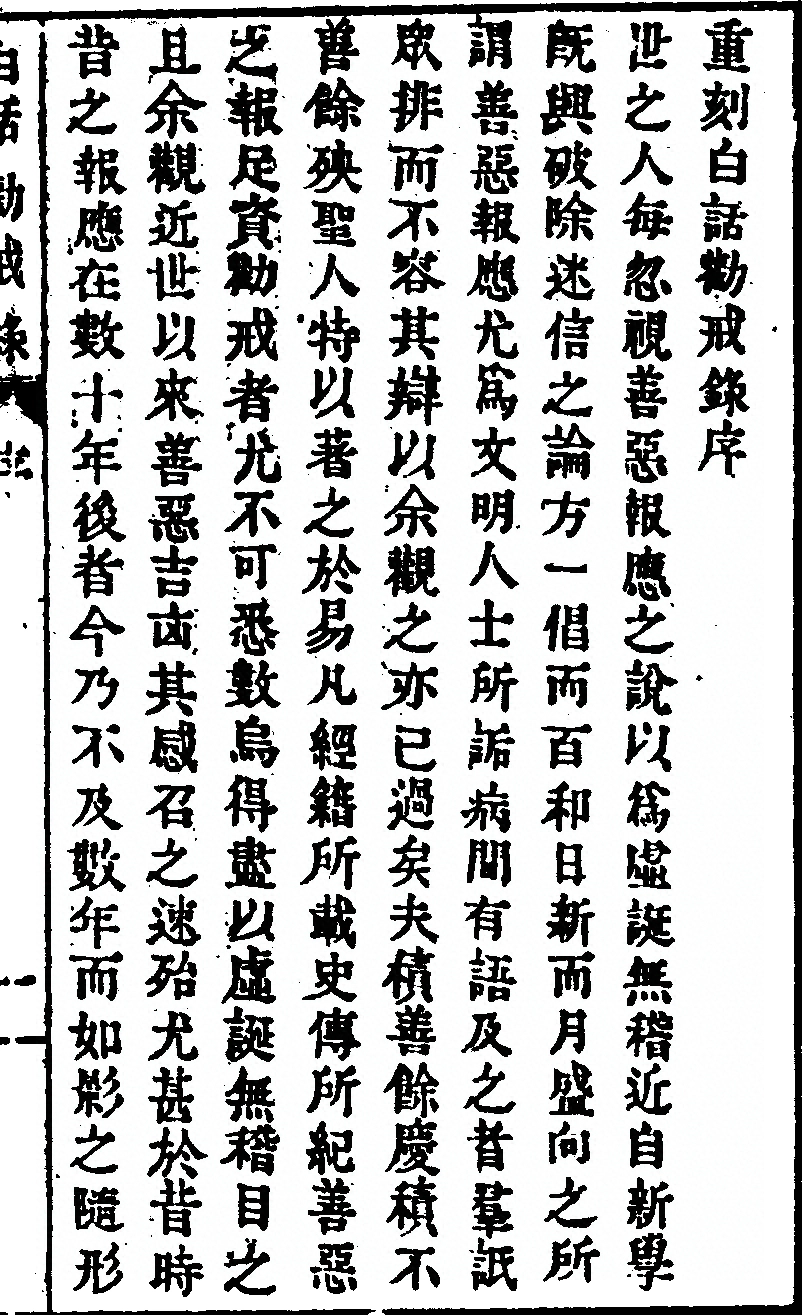 重刻白話勸戒錄序
世之人每忽視善惡報應之說以爲虛誕無稽近自新學
旣興破除迷信之論方一倡而百和日新而月盛向之所
謂善惡報應尤爲文明人士所詬病間有語及之者羣詆
眾排而不容其辯以余觀之亦已過矣夫積善餘慶積不
善餘殃聖人特以著之於易凡經籍所載史傳所紀善惡
之報足資勸戒者尤不可悉數烏得盡以虛誕無稽目之
且余觀近世以來善惡吉凶其感召之速殆尤甚於昔時
昔之報應在數十年後者今乃不及數年而如影之隨形
白話勸戒錄